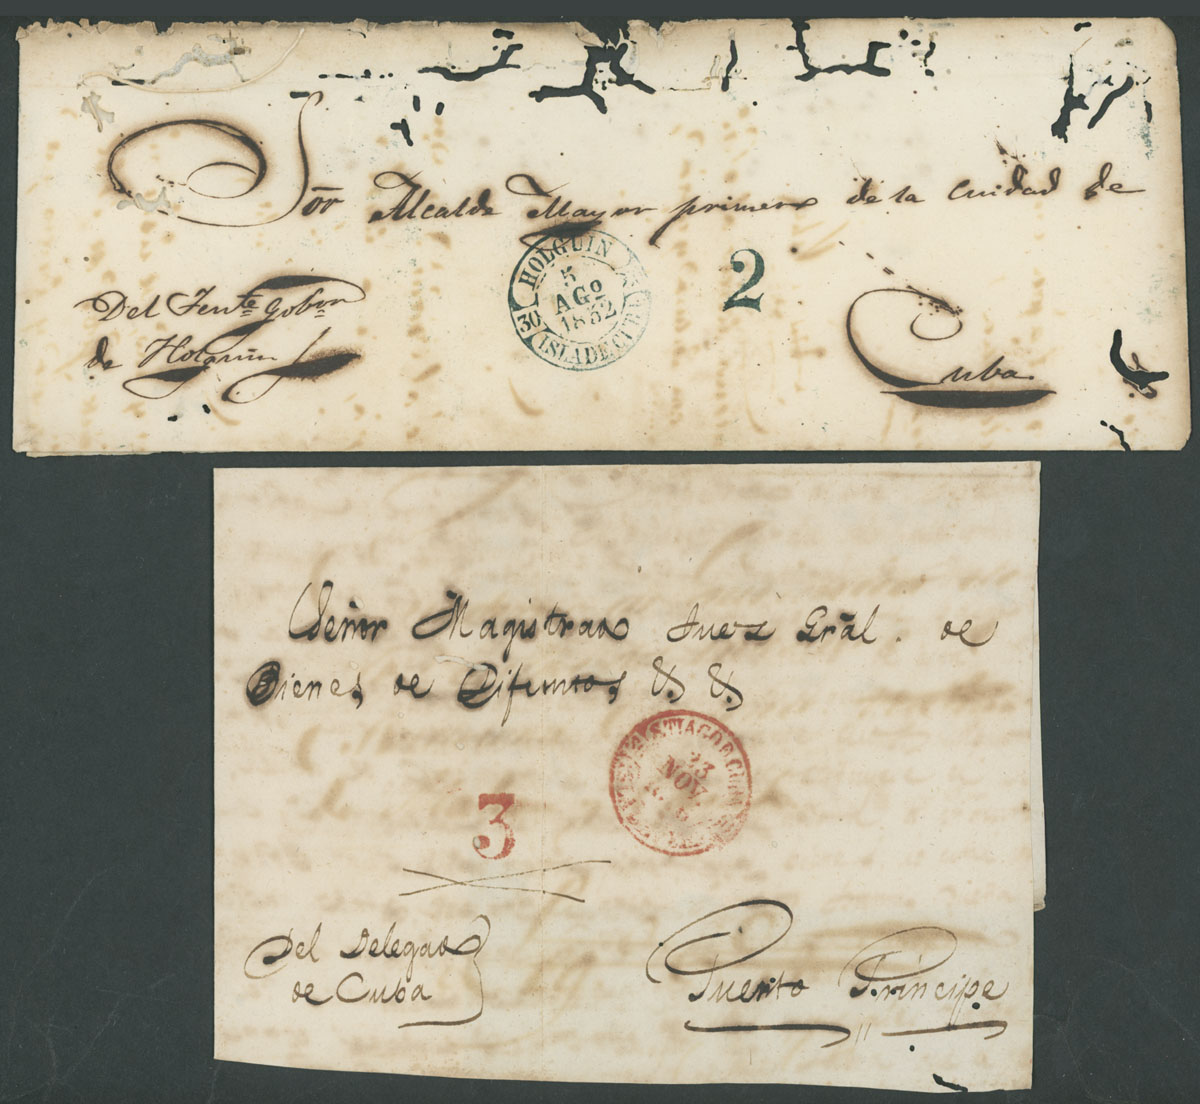 Sor Alcalde Mayor primero de la Cuidad de
HOLGUIN
5
AGo
1852
30
ISLA DE CUBA
2
Del Tente Gobor
de Holguin
Cuba
Señor Magistrado Juez Gral. de
Bienes de Difuntos &. &.
STIAGO DE CUBA
23
NOV
3
Del Delegado
de Cuba
Puerto Principe